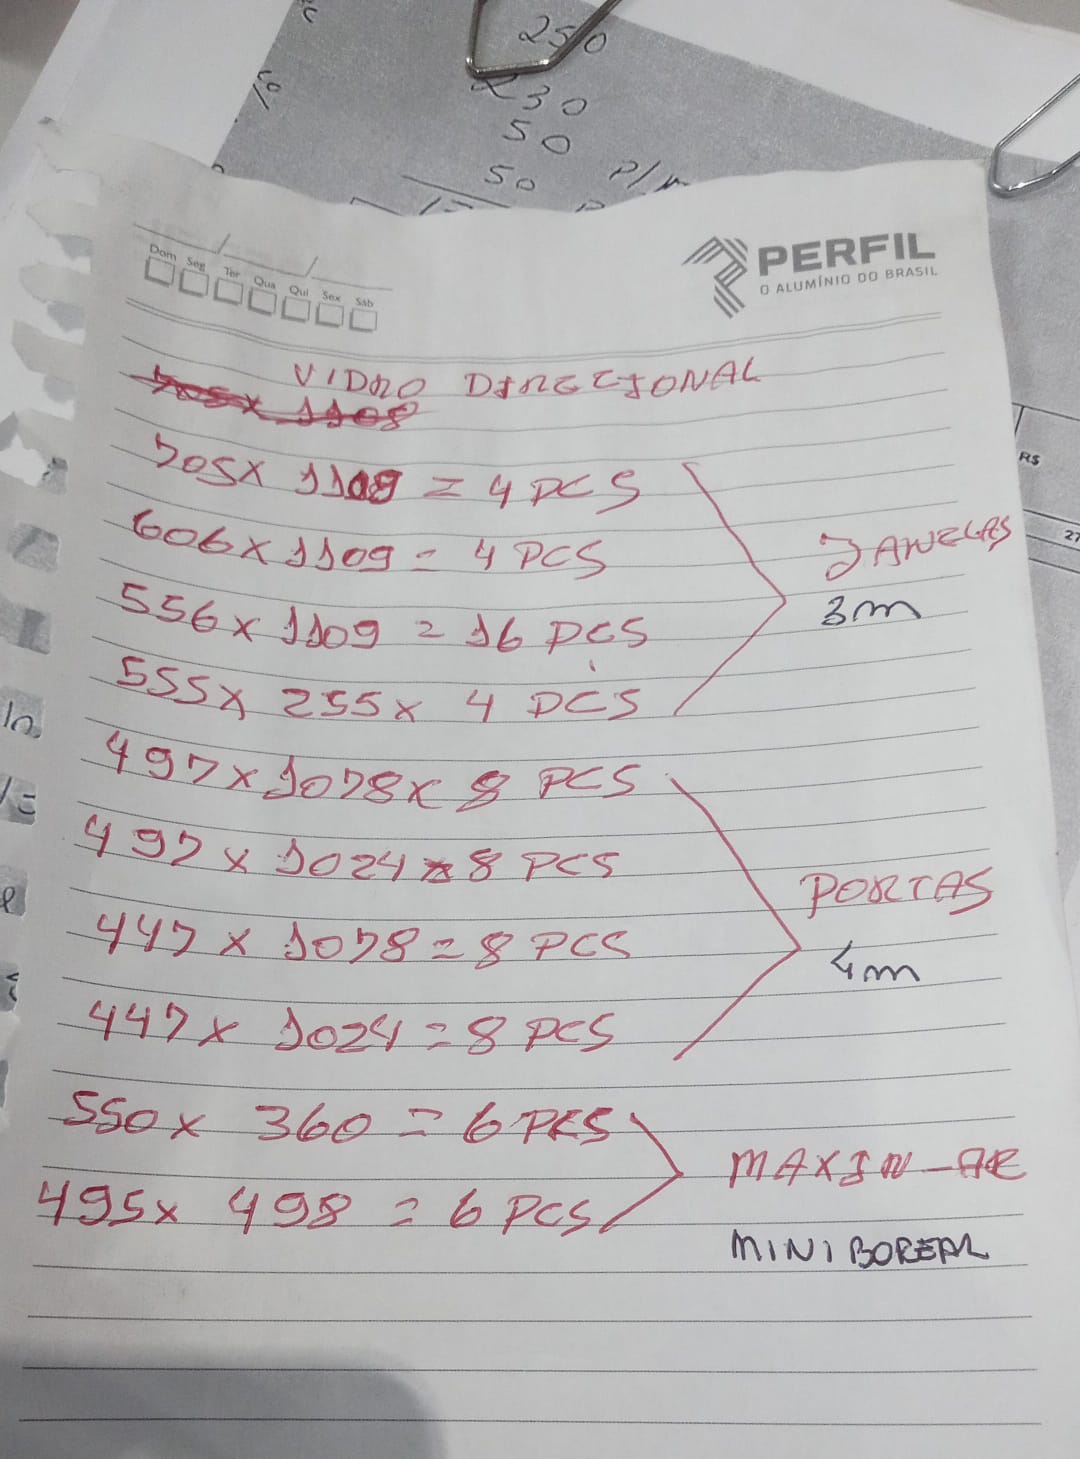 250
230
50
50
P/
Dom Seg Ter Qua Qui Sex Sáb
PERFIL
O ALUMÍNIO DO BRASIL
R$
27
VIDRO DIRECIONAL
705x 1108
705x 1109 = 4 PCS
606x 1109 = 4 PCS
556x 1109 = 16 PCS
555x 255x 4 PCS
JANELAS
3m
497x 1078x 8 PCS
497x 1024x 8 PCS
447x 1078=8 PCS
447x 1024=8 PCS
PORTAS
4m
550x 360 = 6 PES
495x 498 = 6 PCS
MAXIN-AR
MINI BOREAL